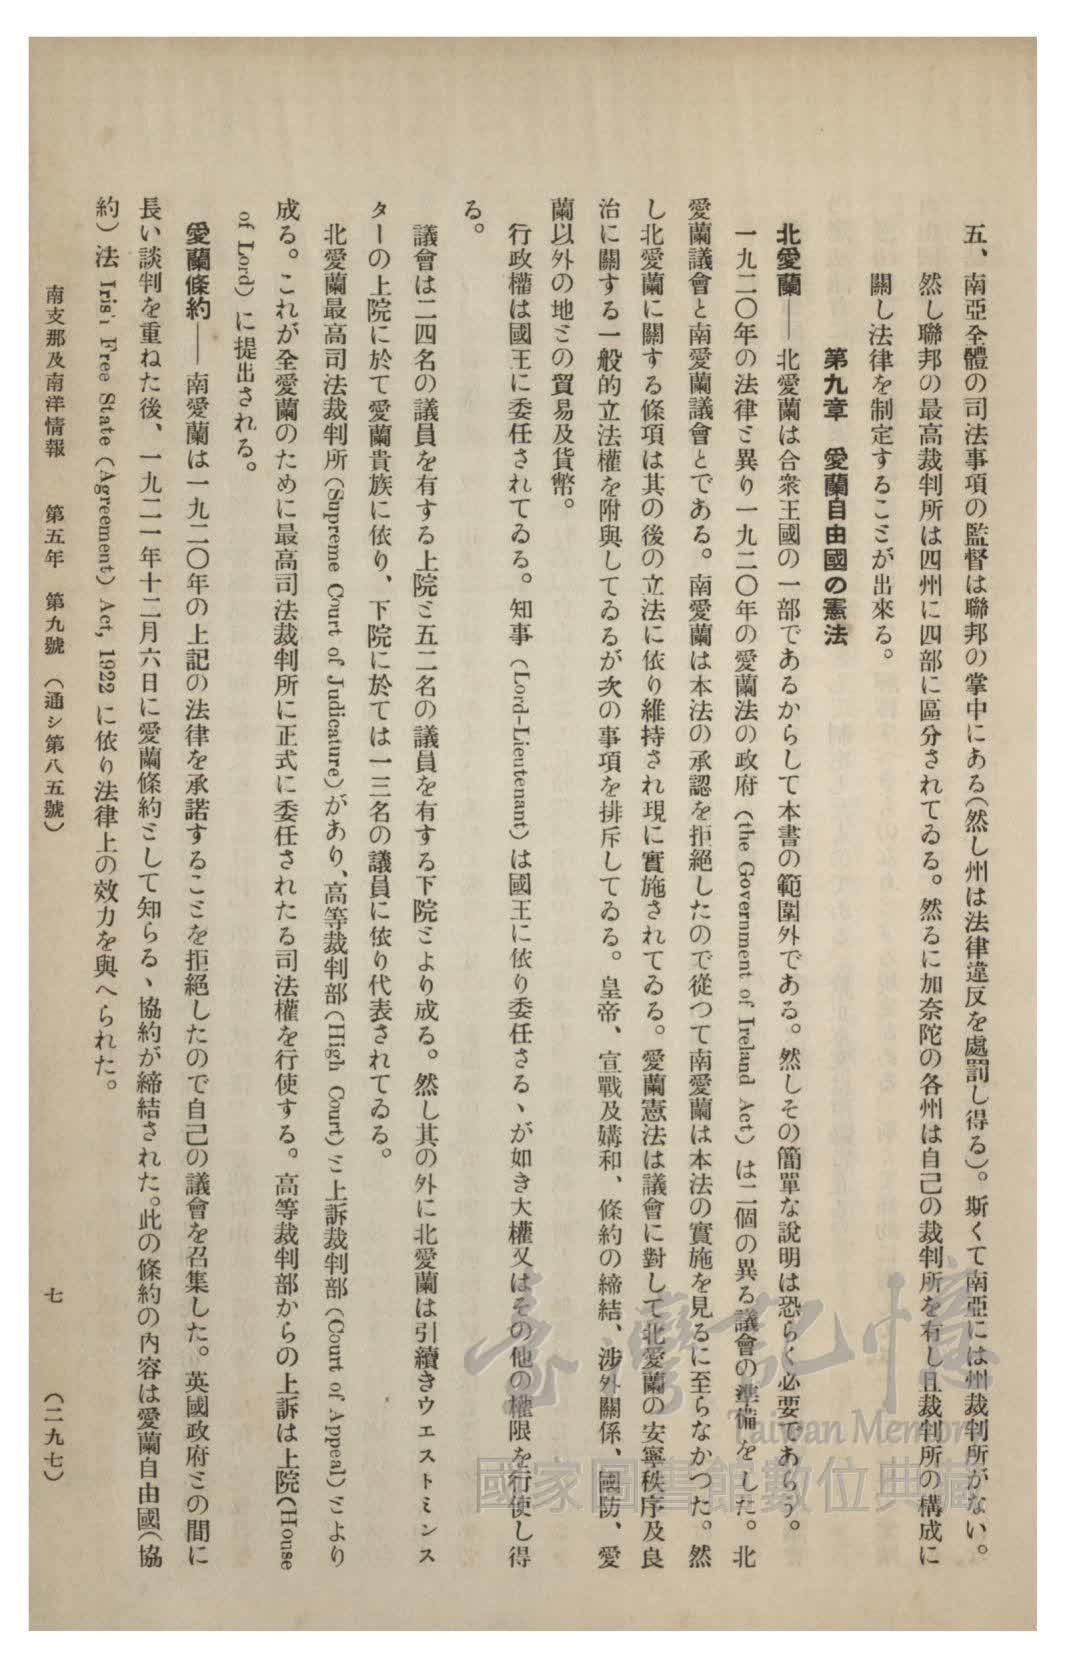 五、南亞全體の司法事項の監督は聯邦の掌中にある(然し州は法律違反を處罰し得る)。斯くて南亞には州裁判所がない。
然し聯邦の最高裁判所は四州に四部に區分されてゐる。然るに加奈陀の各州は自己の裁判所を有し且裁判所の構成に
關し法律を制定することが出來る。
第九章　愛蘭自由國の憲法
北愛蘭――北愛蘭は合衆王國の一部であるからして本書の範圍外である。然しその簡單な說明は恐らく必要であらう。
一九二〇年の法律と異り一九二〇年の愛蘭法の政府 (the Government of Ireland Act) は二個の異る議會の準備をした。北
愛蘭議會と南愛蘭議會とである。南愛蘭は本法の承認を拒絕したので從つて南愛蘭は本法の實施を見るに至らなかつた。然
し北愛蘭に關する條項は其の後の立法に依り維持され現に實施されてゐる。愛蘭憲法は議會に對して北愛蘭の安寧秩序及良
治に關する一般的立法權を附與してゐるが次の事項を排斥してゐる。皇帝、宣戰及媾和、條約の締結、涉外關係、國防、愛
蘭以外の地との貿易及貨幣。
行政權は國王に委任されてゐる。知事 (Lord-Lieutenant) は國王に依り委任さるゝが如き大權又はその他の權限を行使し得
る。
議會は二四名の議員を有する上院と五二名の議員を有する下院とより成る。然し其の外に北愛蘭は引續きウエストミンス
ターの上院に於て愛蘭貴族に依り、下院に於ては一三名の議員に依り代表されてゐる。
北愛蘭最高司法裁判所 (Supreme Court of Judicature) があり、高等裁判部 (High Court) と上訴裁判部 (Court of Appeal) とより
成る。これが全愛蘭のために最高司法裁判所に正式に委任されたる司法權を行使する。高等裁判部からの上訴は上院 (House
of Lord) に提出される。
愛蘭條約――南愛蘭は一九二〇年の上記の法律を承諾することを拒絕したので自己の議會を召集した。英國政府との間に
長い談判を重ねた後、一九二一年十二月六日に愛蘭條約として知らるゝ協約が締結された。此の條約の內容は愛蘭自由國(協
約)法 Iris' Free State (Agreement) Act, 1922 に依り法律上の效力を與へられた。
南支那及南洋情報　第五年　第九號　(通シ第八五號)　七　(二九七)
臺灣記憶
Taiwan Memory
國家圖書館數位典藏